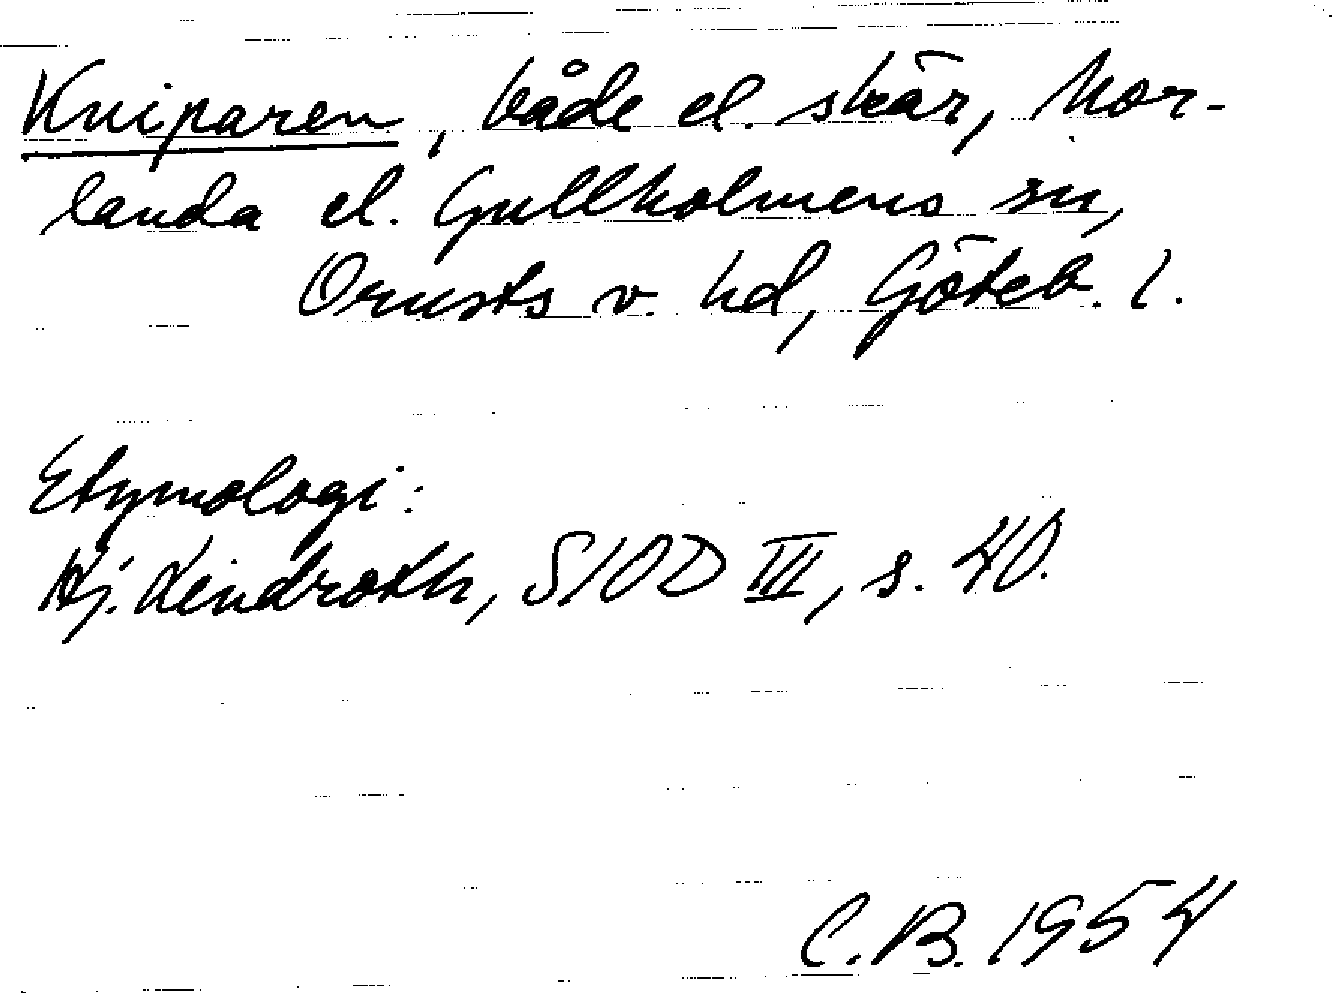 Kniparen, både el. skär, Mor-
landa el. Gullholmens sn,
Orusts v. hd, Göteb. l.
Etymologi:
Hj. Lindroth, SIOD III, s. 40.
C.B. 1954